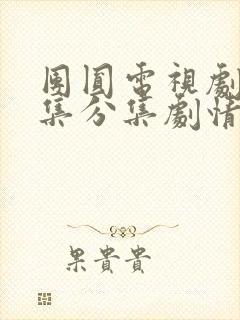 團圓電視劇
集分集劇情
果貴貴